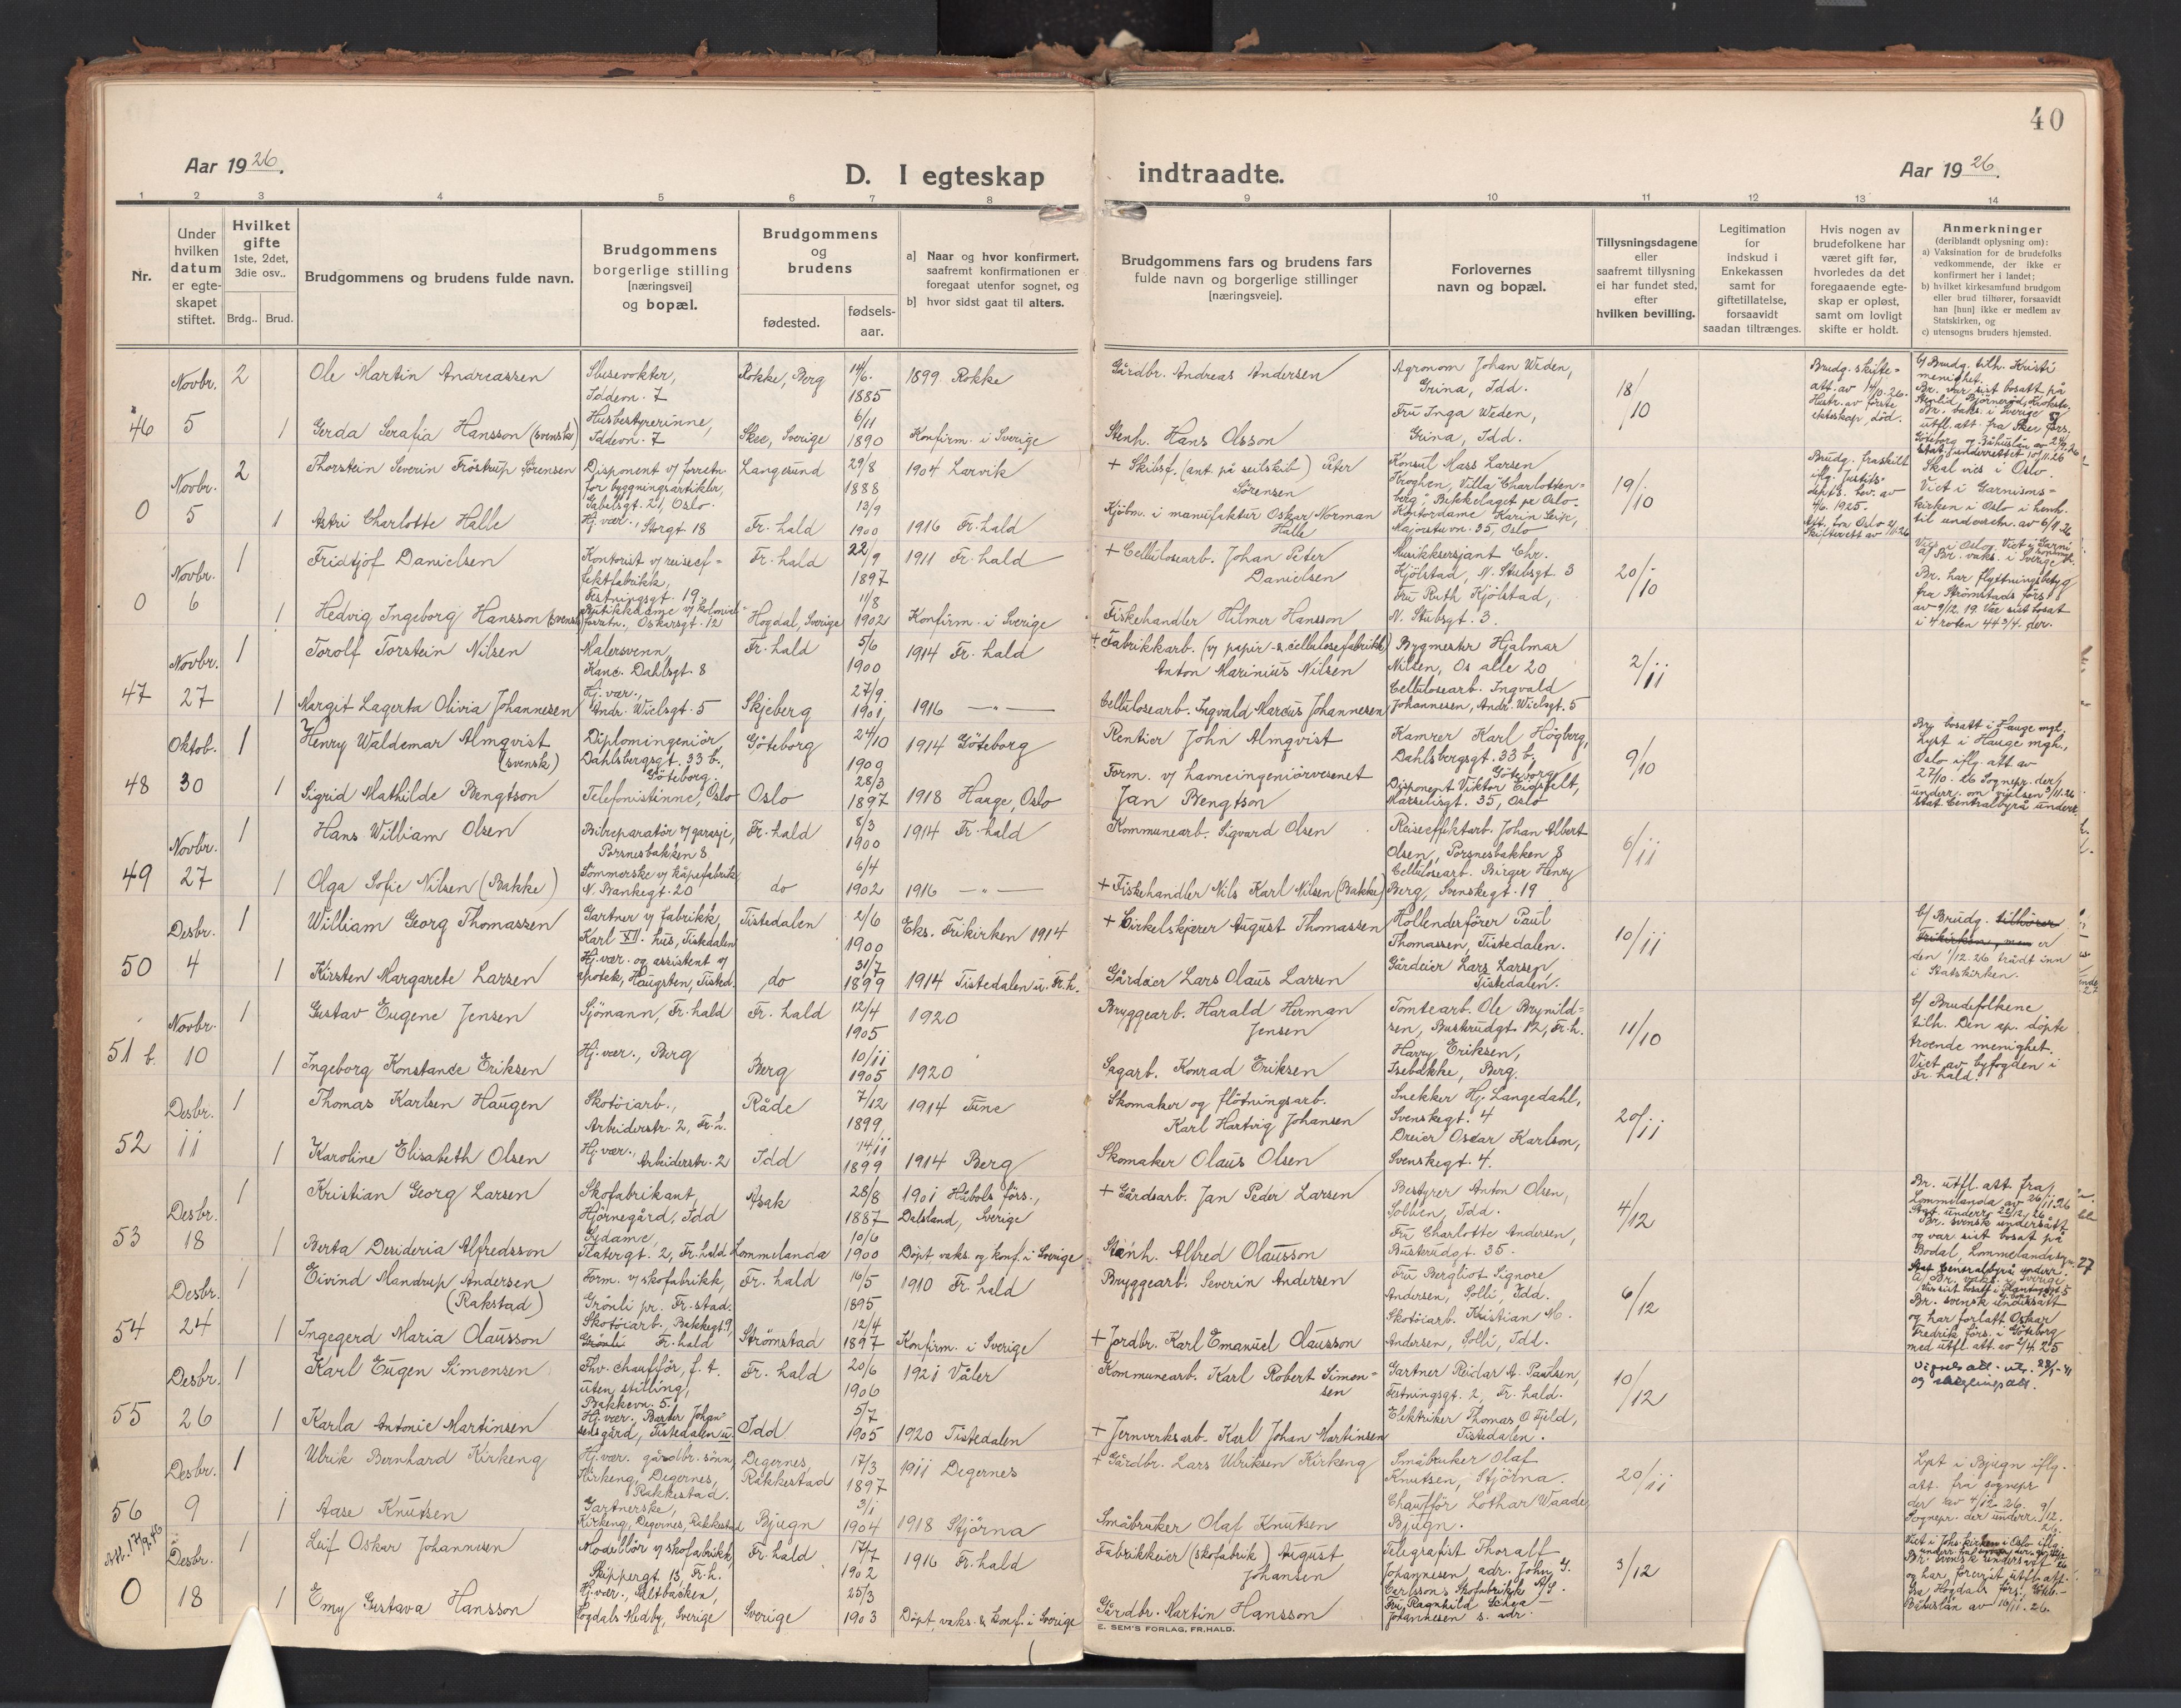 40
Aar 1926.
D. I egteskap indtraadte.
Aar 1926.
1 2 3 4 5 6 7 8 9 10 11 12 13 14
Nr.
Under hvilken datum er egteskapet stiftet.
Hvilket gifte 1ste, 2det, 3die osv..
Brdg.. Brud.
Brudgommens og brudens fulde navn.
Brudgommens borgerlige stilling [næringsvei] og bopæl.
Brudgommens og brudens
fødested.
fødselsaar.
a] Naar og hvor konfirmert, saafremt konfirmationen er foregaat utenfor sognet, og
b] hvor sidst gaat til alters.
Brudgommens fars og brudens fars fulde navn og borgerlige stillinger [næringsveie].
Forlovernes navn og bopæl.
Tillysningsdagene eller saafremt tillysning ei har fundet sted, efter hvilken bevilling.
Legitimation for indskud i Enkekassen samt for giftetillatelse, forsaavidt saadan tiltrænges.
Hvis nogen av brudefolkene har været gift før, hvorledes da det foregaaende egteskap er opløst, samt om lovligt skifte er holdt.
Anmerkninger
(deriblandt oplysning om):
a) Vaksination for de brudefolks vedkommende, der ikke er konfirmert her i landet;
b) hvilket kirkesamfund brudgom eller brud tilhører, forsaavidt han [hun] ikke er medlem av Statskirken, og
c) utensogns bruders hjemsted.
46 Novbr. 5
2 Ole Martin Andreassen Slusevokter, Iddevn. 7 Rokke, Berg 14/6. 1885 1899 Rokke Gårdbr. Andreas Andersen Agronom Johan Weden, Grina, Idd. 18/10
Brudg. skifteatt. av 14/10.26. Hustr. av første ekteskap død.
b/ Brudg. tilh. Kristi menighet.
1 Gerda Serafia Hansson (svensk) Husbestyrerinne, Iddevn. 7 Skee, Sverige 6/11 1890 Konfirm. i Sverige Stenh. Hans Olsson Fru Inga Weden, Grina, Idd.
0 Novbr. 5
2 Thorstein Severin Fröstrup Sörensen Disponent v/ forretn. for byggningsartikler, Gabelsgt. 21, Oslo. Langesund 29/8 1888 1904 Larvik + Skibsf. (ant. på seilskib) Peter Sörensen Konsul Mass Larsen Kroghen, Villa "Charlottenberg", Bekkelaget pr Oslo. 19/10
Brudg. fraskilt iflg. justitsdept's. bev. av 4/6. 1925.
Skal vies i Oslo. Viet i Garnisonskirken i Oslo
1 Astri Charlotte Halle Hj. vær., Storgt 18 Fr. hald 13/9 1900 1916 Fr. hald Kjöbm. i manufaktur Oskar Norman Halle Kontordame Karin Leire, Majorstuvn. 35, Oslo
0 Novbr. 6
1 Fridtjof Danielsen Kontorist v/ reiseeffektfabrikk, Festningsgt. 19. Fr. hald 22/9 1897 1911 Fr. hald + Cellulosearb. Johan Peter Danielsen Musikksersjant Chr. Kjölstad, N. Stubsgt. 3 20/10
1 Hedvig Ingeborg Hansson (svensk) Butikkdame v/ kolonialforretn., Oskarsgt. 12 Hogdal, Sverige 11/8 1902 Konfirm. i Sverige Fiskehandler Hilmer Hansson Fru Ruth Kjölstad, N. Stubsgt. 3.
Br. har flyttningsbetyg fra Strömstads förs. av 9/12. 19.
47 Novbr. 27
1 Torolf Torstein Nilsen Malersvenn, Kanc. Dahlsgt. 8 Fr. hald 5/6 1900 1914 Fr. hald + Fabrikkarb. (v/ papir- & cellulosefabrikk) Anton Marinius Nilsen Bygmester Hjalmar Nilsen, Os alle 20 2/11
1 Margit Lagerta Olivia Johannesen Hj. vær., Andr. Wielsgt. 5 Skjeberg 27/9. 1901, 1916 —"— Cellulosearb. Ingvald Marcus Johannesen Cellulosearb. Ingvald Johannesen, Andr. Wielsgt. 5
48 Oktob. 30
1 Henry Waldemar Almqvist (svensk) Diplomingeniör, Dahlsbergsgt. 33 b., Göteborg. Göteborg 24/10 1909 1914 Göteborg Rentier John Almqvist Kamrer Karl Högberg, Dahlsbergsgt. 33 b. Göteborg 9/10
1 Sigrid Mathilde Bengtson Telefonistinne, Oslo Oslo 28/3 1897 1918 Hauge, Oslo Form. v/ havneingeniörvesenet Jan Bengtson Disponent Viktor Eidsfelt, Marselisgt. 35, Oslo
49 Novbr. 27
1 Hans William Olsen Bilreparatör v/ garasje, Porsnesbakken 8 Fr. hald 8/3 1900 1914 Fr. hald Kommunearb. Sigvard Olsen Reiseeffektarb. Johan Albert Olsen, Porsnesbakken 8 6/11
1 Olga Sofie Nilsen (Bakke) Sömmerske v/ kåpefabrik N. Bankegt. 20 do 6/4 1902 1916 —"— + Fiskehandler Nils Karl Nilsen (Bakke) Cellulosearb. Birger Henry Berg, Svenskegt. 19
50 Desbr. 4
1 William Georg Thomassen Gartner v/ fabrikk, Karl XII. hus, Tistedalen Tistedalen 2/6 1900 Eks. Frikirken 1914 + Cirkelskjærer August Thomassen Hollenderförer Paul Thomassen, Tistedalen. 10/11
b/ Brudg. tilhörer Frikirken, men er den 1/12.26 trådt inn i Statskirken.
1 Kirsten Margarete Larsen Hj. vær. og assistent v/ apotek, Haugsten, Tisted. do 31/7 1899 1914 Tistedalen u. Fr. h. Gårdeier Lars Olaus Larsen Gårdeier Lars Larsen, Tistedalen.
51 b. Novbr. 10
1 Gustav Eugene Jensen Sjömann, Fr. hald Fr. hald 12/4 1905 1920 Bryggearb. Harald Herman Jensen Tomtearb. Ole Brynildsen, Busterudgt. 12, Fr. h. 11/10
b/ Brudefolkene tilh. Den ap. döpte troende menighet. Viet av byfogden i Fr. hald.
1 Ingeborg Konstance Eriksen Hj. vær., Berg Berg 10/11 1905 1920 Sagarb. Konrad Eriksen Harry Eriksen, Isebakke, Berg.
52 Desbr. 11
1 Thomas Karlsen Haugen Skotöiarb., Arbeiderstr. 2, Fr. h. Råde 7/12 1899, 1914 Tune Skomaker og flötningsarb. Karl Hartvig Johansen Snekker Hj. Langedahl, Svenskegt. 4 20/11
1 Karoline Elisabeth Olsen Hj. vær., Arbeiderstr. 2 Idd 14/11 1899 1914 Berg Skomaker Olaus Olsen Dreier Oscar Karlson, Svenskegt. 4.
53 Desbr. 18
1 Kristian Georg Larsen Skofabrikant, Hjörnegård, Idd Asak 28/8 1887 1901 Håbols förs., Dalsland, Sverige + Gårdsarb. Jan Peder Larsen Bestyrer Anton Olsen, Sollien, Idd. 4/12
1 Berta Desideria Alfredsson Sydame, Flatergt. 2, Fr. hald Lommelanda 10/6 1900 Döpt, vaks. og konf. i Sverige Stenh. Alfred Olausson Fru Charlotte Andersen, Busterudgt. 35.
Br. utfl. att. fra Lommelanda av 26/11.26
Br. svensk undersått og var sist bosat på Bodal, Lommelanda
54 Desbr. 24
1 Eivind Mandrup Andersen (Rakstad) Form. v/ skofabrikk, Grönli pr. Fr. stad. Fr. hald 16/5 1895 1910 Fr. hald Bryggearb. Severin Andersen Fru Bergliot Signore Andersen, Solli, Idd. 6/12
1 Ingegerd Maria Olausson Skotöiarb., Bakkegt. 9, Grönli Fr. hald Strömstad 12/4 1897 Konfirm. i Sverige + Jordbr. Karl Emanuel Olausson Skotöiarb. Kristian M. Andersen, Solli, Idd.
Br. svensk undersått og har forlatt Oskar Fredrik förs. i Göteborg med utfl. att. av 2/4. 25
55 Desbr. 26
1 Karl Eugen Simensen Fhv. chaufför, f. t. uten stilling, Bakkevn. 5. Fr. hald 20/6 1906 1921 Våler Kommunearb. Karl Robert Simensen Gartner Reidar A. Paulsen, Festningsgt. 2, Fr. hald. 10/12
1 Karla Antonie Martinsen Hj. vær. Barter Johansensgård, Tistedalen u. Idd 5/7 1905 1920 Tistedalen + Jernverksarb. Karl Johan Martinsen Elektriker Thomas O. Fjeld, Tistedalen.
56 Desbr. 9
1 Ulrik Bernhard Kirkeng Hj. vær. gårdbr. sönn, Kirkeng, Degernes, Rakkestad. Degernes, Rakkestad 17/3 1897 1911 Degernes + Gårdbr. Lars Ulriksen Kirkeng Småbruker Olaf Knutsen, Stjörna. 20/11
1 Aase Knutsen Gartnerske, Kirkeng, Degernes, Rakkestad Bjugn 3/1 1904 1918 Stjörna Småbruker Olaf Knutsen Chaufför Lothar Waade, Bjugn.
Lyst i Bjugn iflg. att. fra sognepr. der av 4/12. 26. Sognepr. der underr. 9/12. 26.
Att. 17/9.46
0 Desbr. 18
1 Leif Oskar Johannesen Modellör v/ skofabrikk, Skippergt. 13, Fr. h. Fr. hald 17/7 1902 1916 Fr. hald Fabrikkeier (skofabrik) August Johansen Telegrafist Thoralf Johannesen, adr. John J. Carlsson's Skofabrikk A/S. 3/12
1 Emy Gustava Hansson Hj. vær., Saltbacken, Hogdals Nedby, Sverige Sverige 25/3 1903 Döpt, vaks. & konf. i Sverige Gårdbr. Martin Hansson Fru Ragnhild Johannesen s. adr.
E. SEM'S FORLAG, FR.HALD.